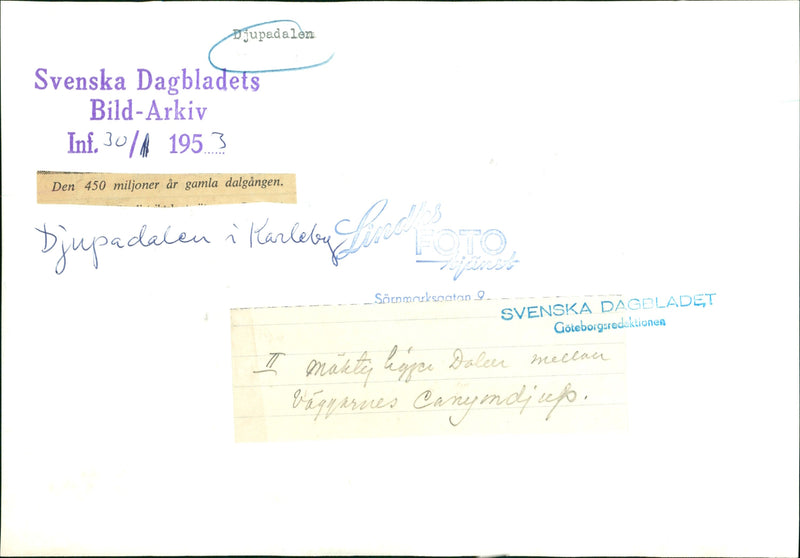 Djupadalen
Svenska Dagbladets
Bild-Arkiv
Inf. 30/1 1953
Den 450 miljoner år gamla dalgången.
Djupadalen i Karleby
FOTO
tjänst
SVENSKA DAGBLADET
Göteborgsredaktionen
II Mäktig ligger Dalen mellan
Väggarnes Canyondjup.